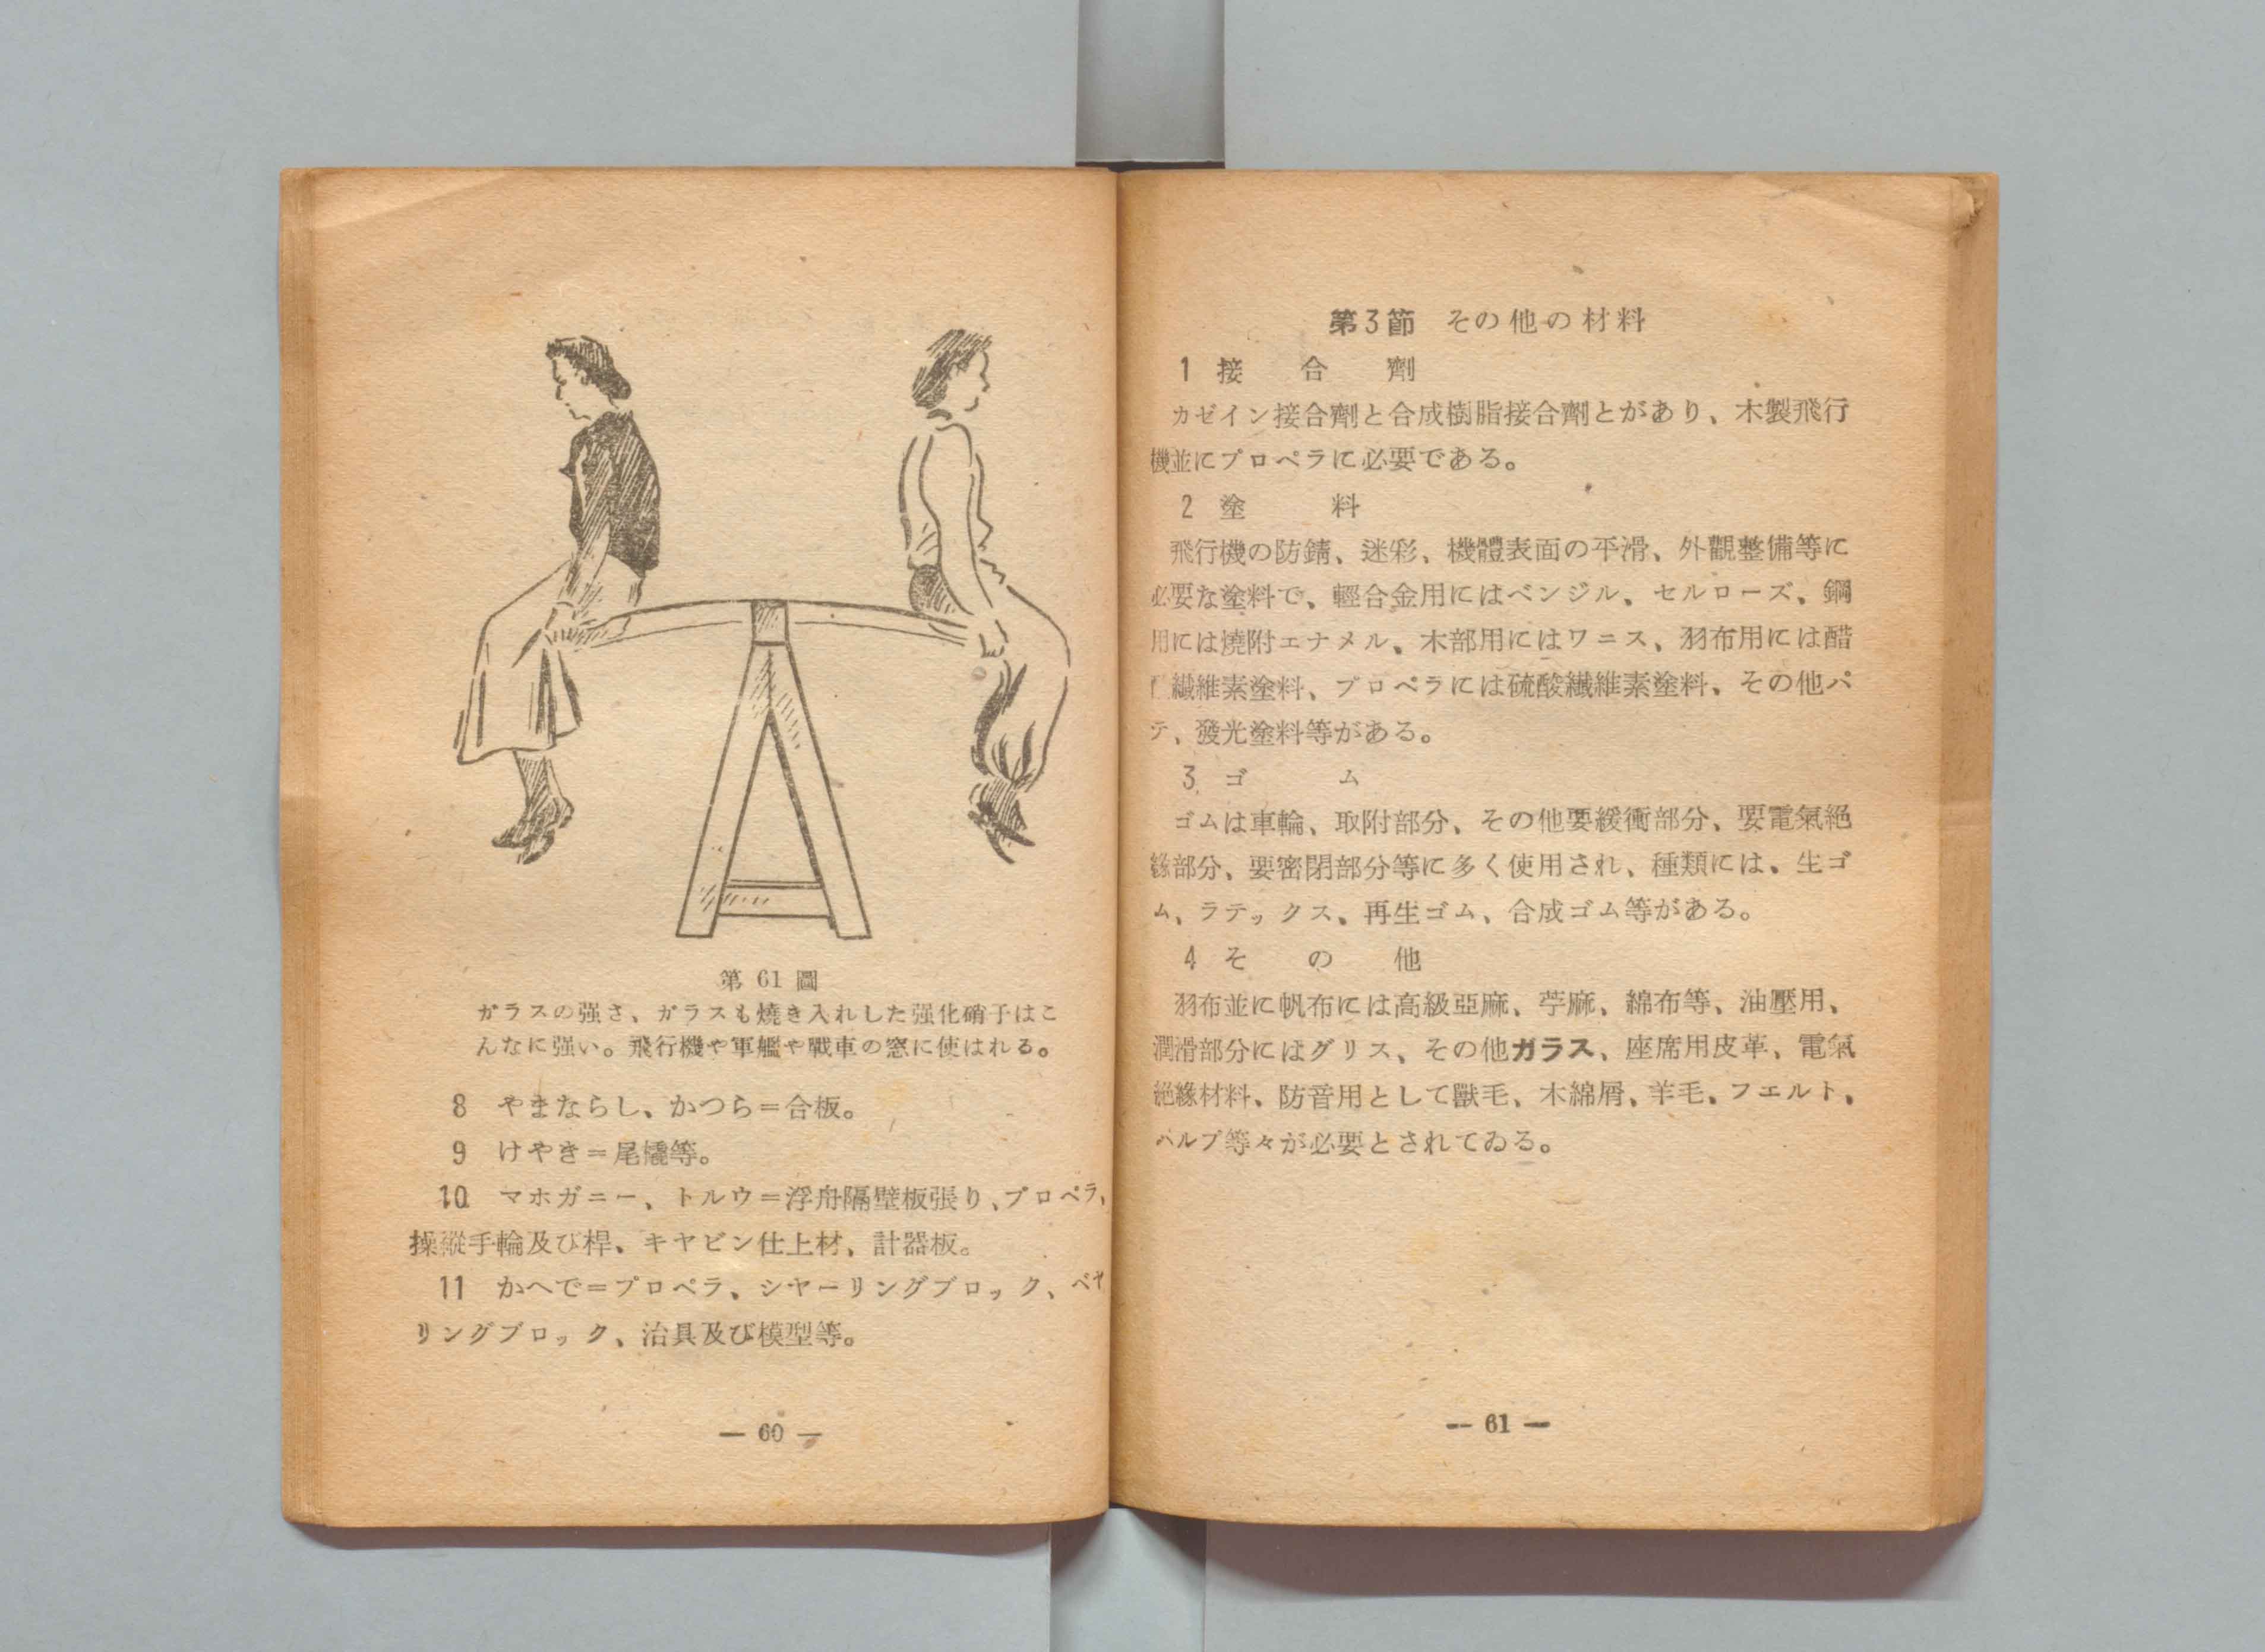 第 61 圖
ガラスの强さ、ガラスも燒き入れした强化硝子はこ
んなに强い。飛行機や軍艦や戰車の窓に使はれる。
8 やまならし、かつら＝合板。
9 けやき＝尾橇等。
10 マホガニー、トルウ＝浮舟隔壁板張り、プロペラ、
操縱手輪及び桿、キヤビン仕上材、計器板。
11 かへで＝プロペラ、シヤーリングブロック、ベヤ
リングブロック、治具及び模型等。
— 60 —
第3節 その他の材料
1 接合劑
カゼイン接合劑と合成樹脂接合劑とがあり、木製飛行
機並にプロペラに必要である。
2 塗料
飛行機の防錆、迷彩、機體表面の平滑、外觀整備等に
必要な塗料で、輕合金用にはベンジル、セルローズ、鋼
用には燒附エナメル、木部用にはワニス、羽布用には醋
纖維素塗料、プロペラには硫酸纖維素塗料、その他パ
テ、發光塗料等がある。
3 ゴム
ゴムは車輪、取附部分、その他要緩衝部分、要電氣絕
緣部分、要密閉部分等に多く使用され、種類には、生ゴ
ム、ラテックス、再生ゴム、合成ゴム等がある。
4 その他
羽布並に帆布には高級亞麻、苧麻、綿布等、油壓用、
潤滑部分にはグリス、その他ガラス、座席用皮革、電氣
絕緣材料、防音用として獸毛、木綿屑、羊毛、フエルト、
パルプ等々が必要とされてゐる。
— 61 —